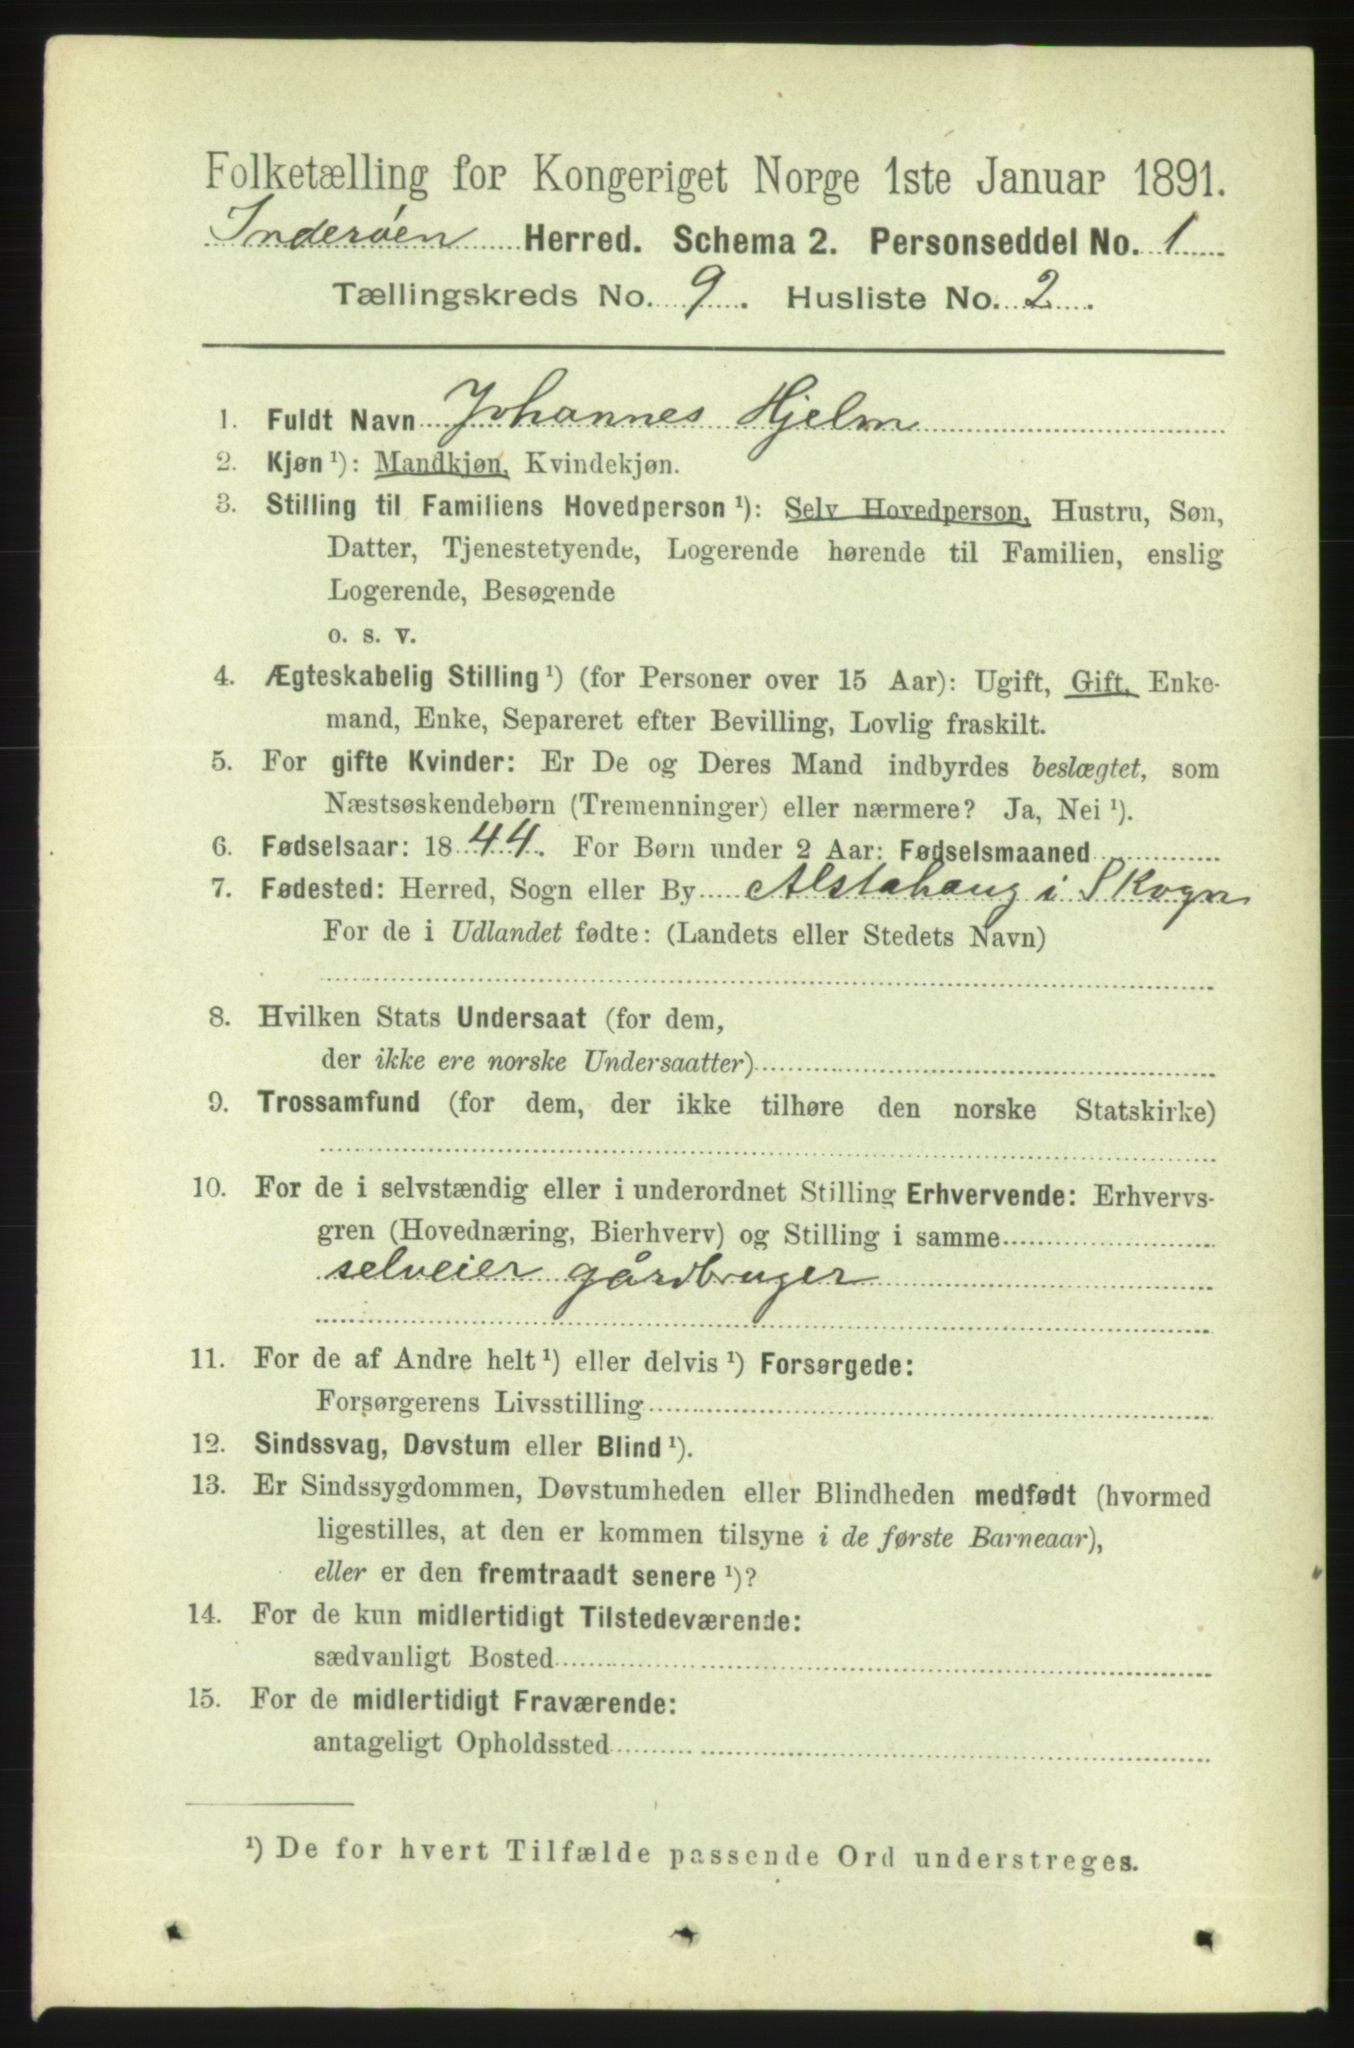 Folketælling for Kongeriget Norge 1ste Januar 1891.
Inderøen Herred. Schema 2. Personseddel No. 1
Tællingskreds No. 9. Husliste No. 2.
1. Fuldt Navn Johannes Hjelm
2. Kjøn ¹): Mandkjøn, Kvindekjøn.
3. Stilling til Familiens Hovedperson ¹): Selv Hovedperson, Hustru, Søn,
Datter, Tjenestetyende, Logerende hørende til Familien, enslig
Logerende, Besøgende
o. s. v.
4. Ægteskabelig Stilling ¹) (for Personer over 15 Aar): Ugift, Gift, Enke-
mand, Enke, Separeret efter Bevilling, Lovlig fraskilt.
5. For gifte Kvinder: Er De og Deres Mand indbyrdes beslægtet, som
Næstsøskendebørn (Tremenninger) eller nærmere? Ja, Nei ¹).
6. Fødselsaar: 1844. For Børn under 2 Aar: Fødselsmaaned
7. Fødested: Herred, Sogn eller By Alstahaug i Skogn
For de i Udlandet fødte: (Landets eller Stedets Navn)
8. Hvilken Stats Undersaat (for dem,
der ikke ere norske Undersaatter)
9. Trossamfund (for dem, der ikke tilhøre den norske Statskirke)
10. For de i selvstændig eller i underordnet Stilling Erhvervende: Erhvervs-
gren (Hovednæring, Bierhverv) og Stilling i samme
selveier gårdbruger
11. For de af Andre helt ¹) eller delvis ¹) Forsørgede:
Forsørgerens Livsstilling
12. Sindssvag, Døvstum eller Blind ¹).
13. Er Sindssygdommen, Døvstumheden eller Blindheden medfødt (hvormed
ligestilles, at den er kommen tilsyne i de første Barneaar),
eller er den fremtraadt senere ¹)?
14. For de kun midlertidigt Tilstedeværende:
sædvanligt Bosted
15. For de midlertidigt Fraværende:
antageligt Opholdssted
¹) De for hvert Tilfælde passende Ord understreges.